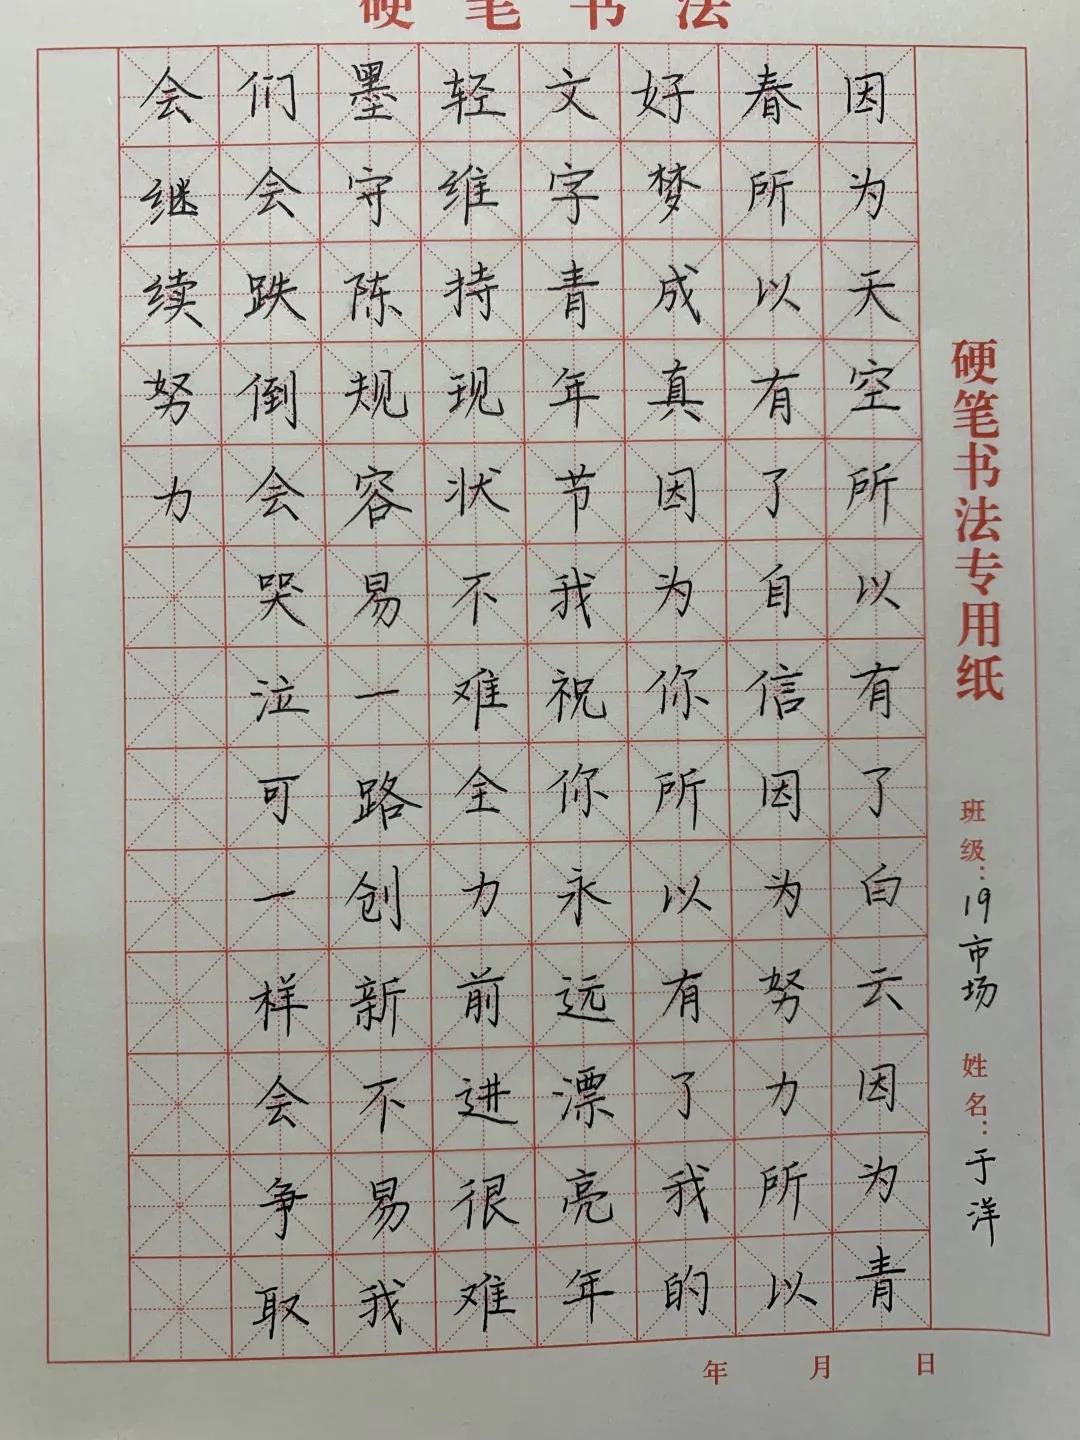 硬笔书法
硬笔书法专用纸
班级：19市场 姓名：于洋
因为天空所以有了白云因为青
春所以有了自信因为努力所以
好梦成真因为你所以有了我的
文字青年节我祝你永远漂亮年
轻维持现状不难全力前进很难
墨守陈规容易一路创新不易我
们会跌倒会哭泣可一样会争取
会继续努力
年 月 日